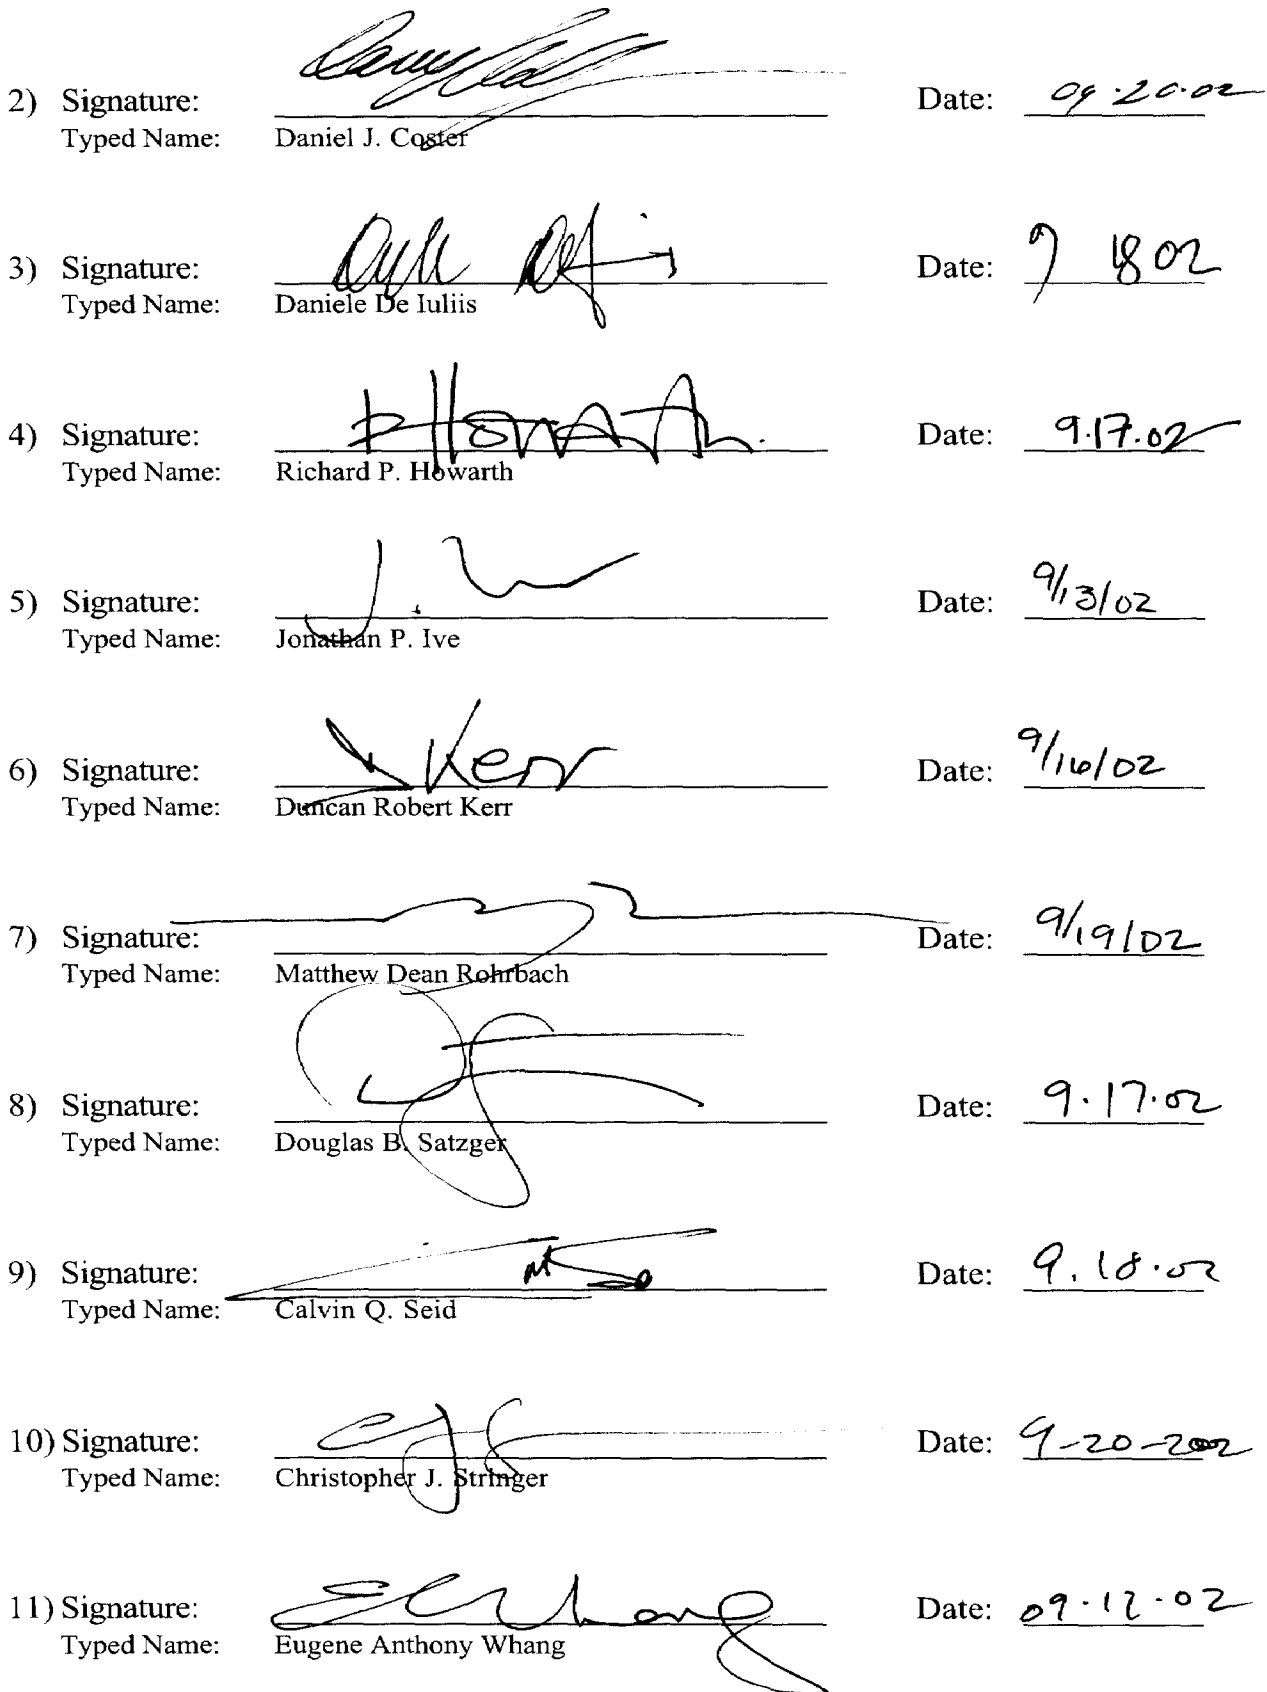 2) Signature: Date: 09·20·02
Typed Name: Daniel J. Coster
3) Signature: Date: 9 18 02
Typed Name: Daniele De Iuliis
4) Signature: R Howarth. Date: 9.17.02
Typed Name: Richard P. Howarth
5) Signature: Date: 9/13/02
Typed Name: Jonathan P. Ive
6) Signature: Kerr Date: 9/16/02
Typed Name: Duncan Robert Kerr
7) Signature: Date: 9/19/02
Typed Name: Matthew Dean Rohrbach
8) Signature: Date: 9.17.02
Typed Name: Douglas B. Satzger
9) Signature: Date: 9.18.02
Typed Name: Calvin Q. Seid
10) Signature: Date: 9-20-2002
Typed Name: Christopher J. Stringer
11) Signature: E Whang Date: 09.12.02
Typed Name: Eugene Anthony Whang